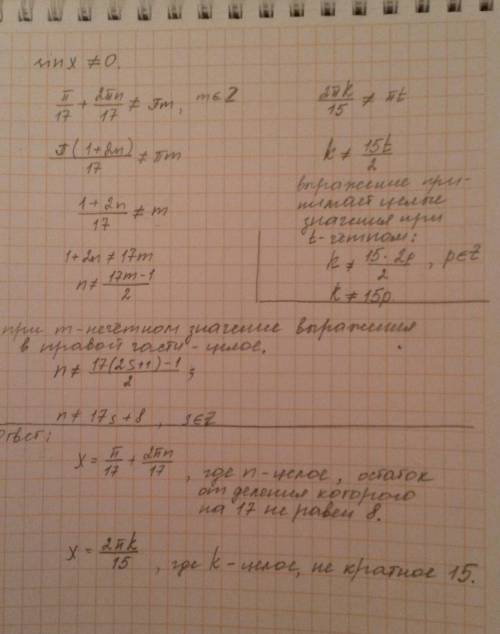 sin x ≠ 0.
π/17 + 2πn/17 ≠ πm, m∈Z
π(1+2n)/17 ≠ πm
(1+2n)/17 ≠ m
1+2n ≠ 17m
n ≠ (17m-1)/2
2πk/15 ≠ πt
k ≠ 15t/2
выражение при-
нимает целые
значения при
t-четном:
k ≠ 15·2p/2, p∈Z
k ≠ 15p
при m-нечетном значение выражения
в правой части - целое.
n ≠ (17(2s+1)-1)/2;
n ≠ 17s+8, s∈Z
Ответ:
x = π/17 + 2πn/17, где n-целое, остаток
от деления которого
на 17 не равен 8.
x = 2πk/15, где k-целое, не кратное 15.